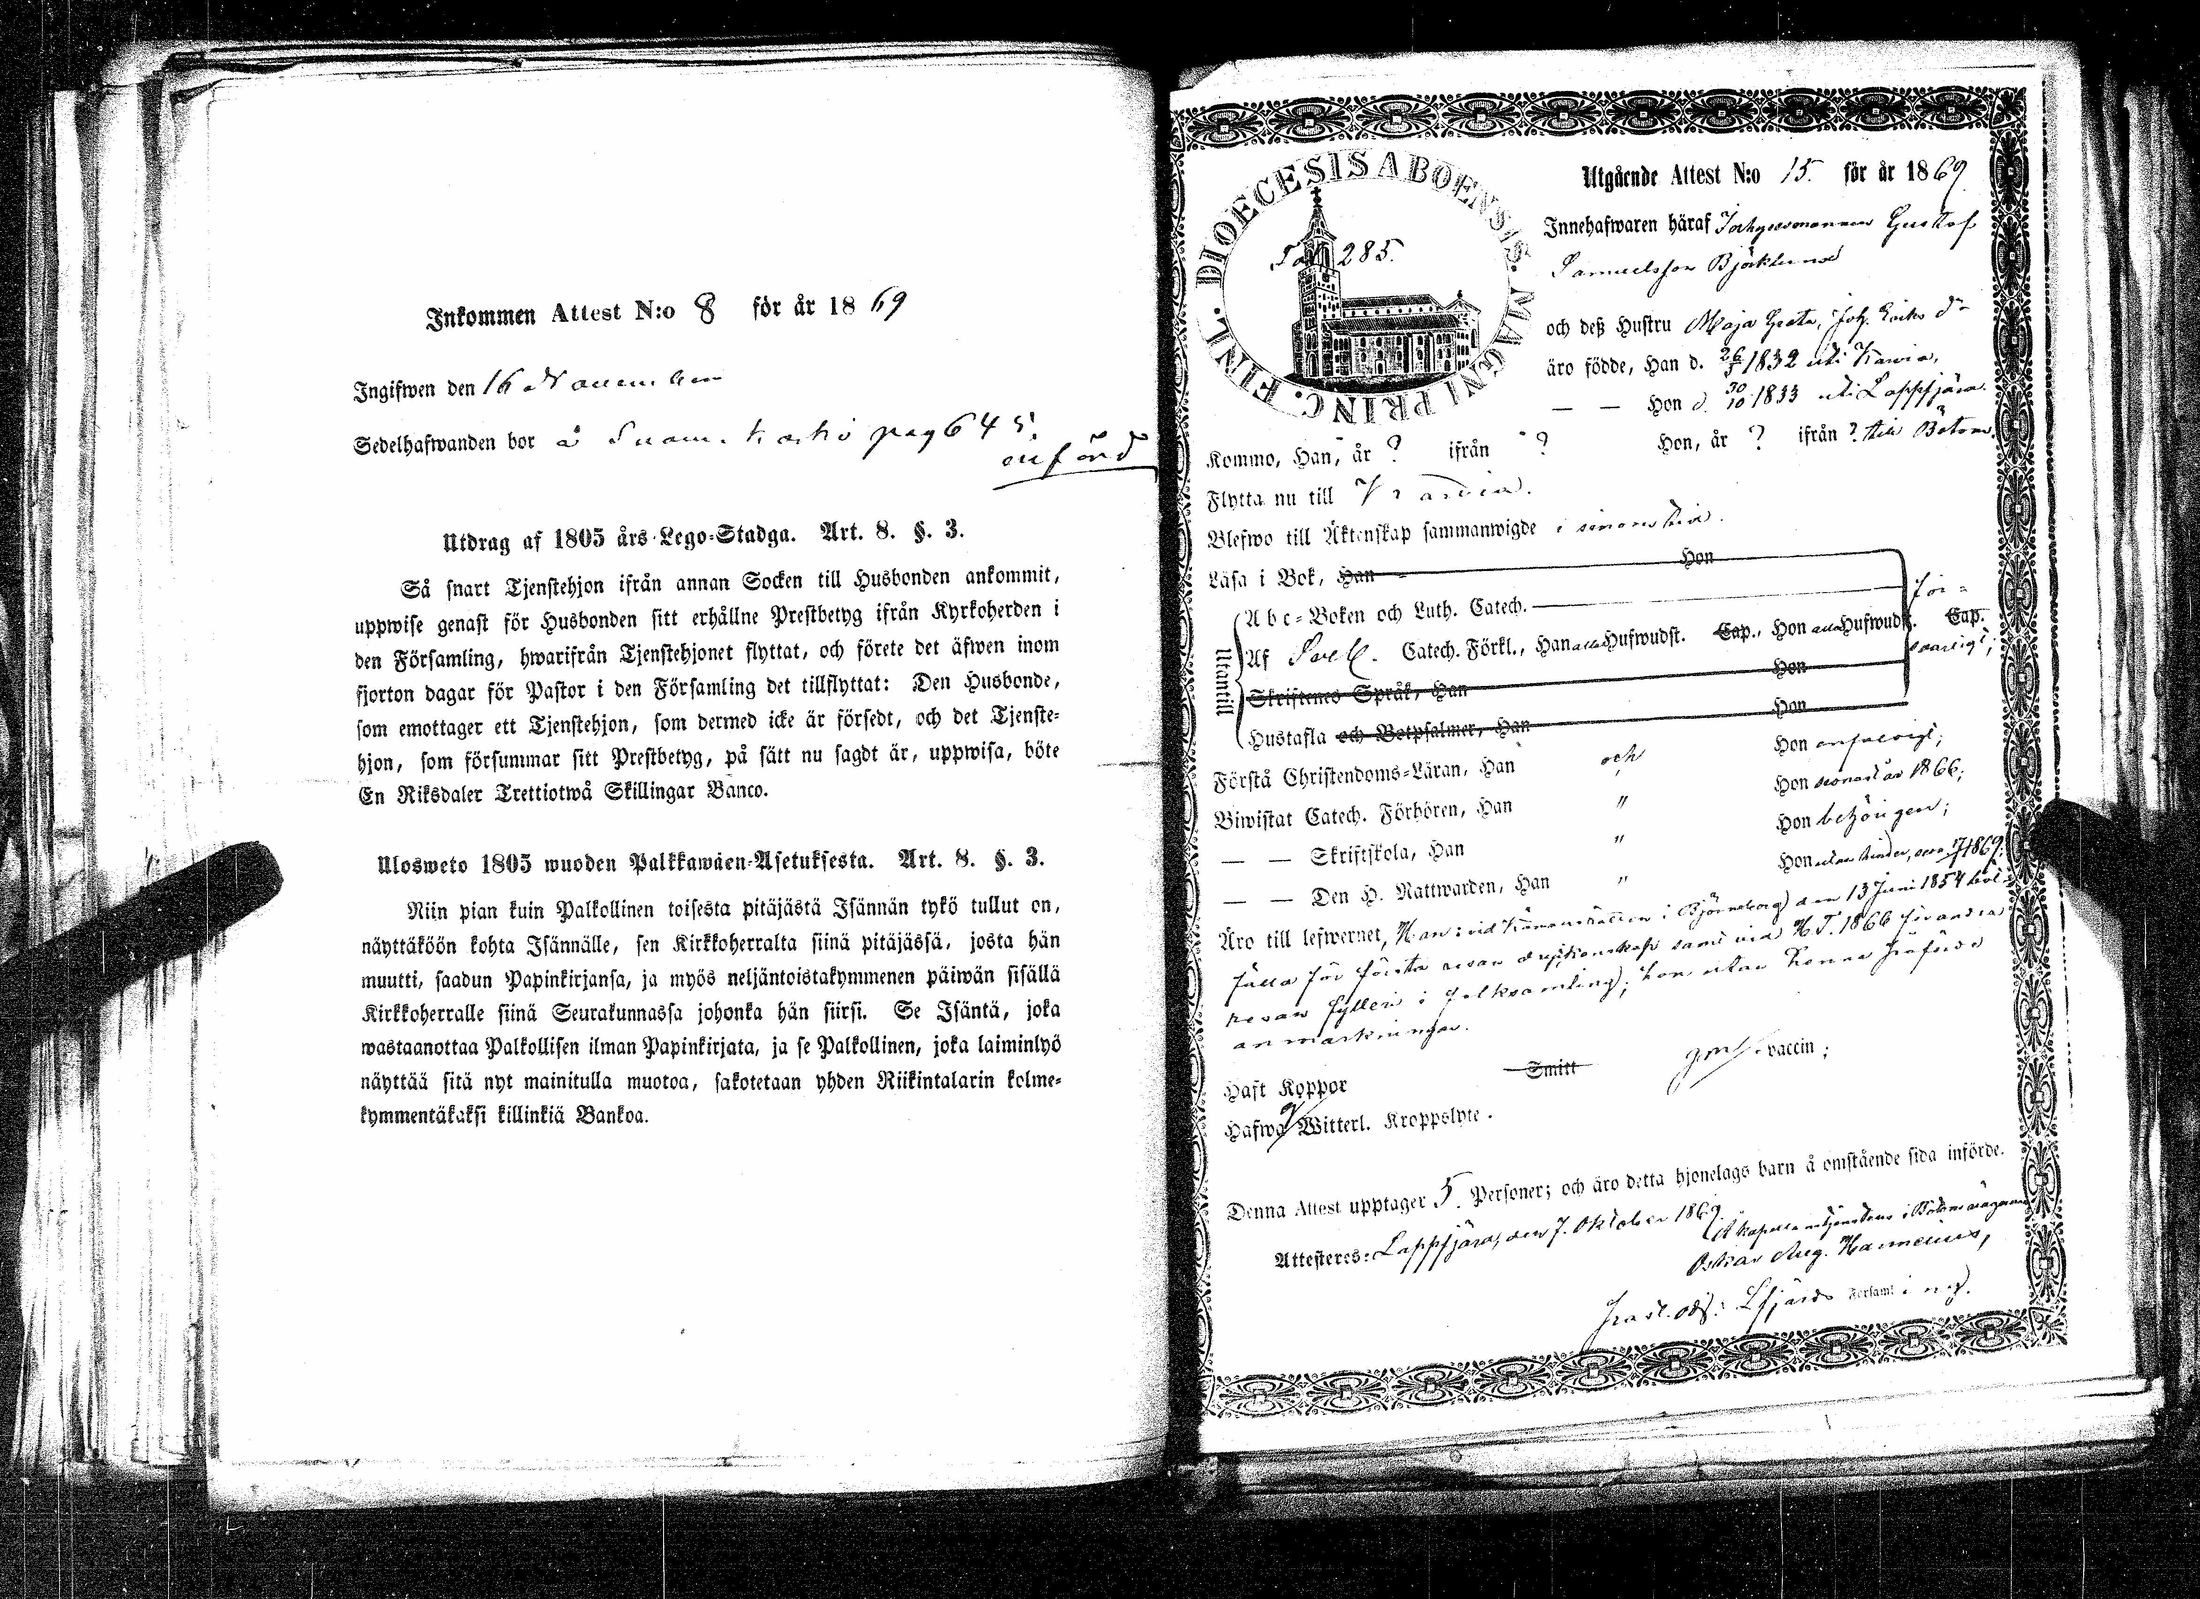 Inkommen Attest N:o 8 för år 1869
Ingifwen den 16 November
Sedelhafwanden bor å Suom. koski pag 645.
anförd
Utdrag af 1805 års Lego-Stadga. Art. 8. §. 3.
Så snart Tjenstehjon ifrån annan Socken till Husbonden ankommit,
uppwise genast för Husbonden sitt erhållne Prestbetyg ifrån Kyrkoherden i
den Församling, hwarifrån Tjenstehjonet flyttat, och förete det äfwen inom
fjorton dagar för Pastor i den Församling det tillflyttat: Den Husbonde,
som emottager ett Tjenstehjon, som dermed icke är försedt, och det Tjenste-
hjon, som försummar sitt Prestbetyg, på sätt nu sagdt är, uppwisa, böte
En Riksdaler Trettiotwå Skillingar Banco.
Ulosweto 1805 wuoden Palkkawäen-Asetuksesta. Art. 8. §. 3.
Niin pian kuin Palkollinen toisesta pitäjästä Isännän tykö tullut on,
näyttäköön kohta Isännälle, sen Kirkkoherralta siinä pitäjässä, josta hän
muutti, saadun Papinkirjansa, ja myös neljäntoistakymmenen päiwän sisällä
Kirkkoherralle siinä Seurakunnassa johonka hän siirsi. Se Isäntä, joka
wastaanottaa Palkollisen ilman Papinkirjata, ja se Palkollinen, joka laiminlyö
näyttää sitä nyt mainitulla muotoa, sakotetaan yhden Riikintalarin kolme-
kymmentäkaksi killinkiä Bankoa.
DIOECESIS ABOENSIS. MAGNI PRINC. FINL.
Fol. 285.
Utgående Attest N:o 15. för år 1869
Innehafwaren häraf Inhysesmannen Gustaf
Samuelsson Björklund
och deß Hustru Maja Greta, Joh. Eriks dr
äro födde, Han d. 26/5 1832 uti Kawia,
— — Hon d. 30/10 1833 uti Lappfjärd.
Kommo, Han, år ? ifrån ? Hon, år ? ifrån ? till Bötom.
Flytta nu till Kawia.
Blefwo till Äktenskap sammanwigde i sinom tid.
Läsa i Bok, Han Hon
Utantill
A b c-Boken och Luth. Catech. för-
Af Sveb. Catech. Förkl., Han alla Hufwudst. Cap., Hon alla Hufwudst. Cap.
svarligt;
Skriftenes Språk, Han Hon
Hustafla och Botpsalmer, Han Hon
Förstå Christendoms-Läran, Han och Hon enfaldigt;
Biwistat Catech. Förhören, Han " Hon senast år 1866;
— — Skriftskola, Han " Hon behörigen;
— — Den H. Nattwarden, Han " Hon utan hinder, 1869;
Äro till lefwernet, Han: vid Kämnersrätten i Björneborg den 13 Juni 1854
fälld för första resan samt vid H. T. 1866 för andra
resan fylleri i folksamling; hon utan kända
anmärkningar.
Haft Koppor Smitt vaccin;
Hafwa Witterl. Kroppslyte.
Denna Attest upptager 5. Personer; och äro detta hjonelags barn å omstående sida införde.
Attesteres: Lappfjärd, den 7. Oktober 1869.
Å kapellanstjenstens i Bötom wägnar
Oskar Aug. Hannelius,
Lfjärds Församl. i